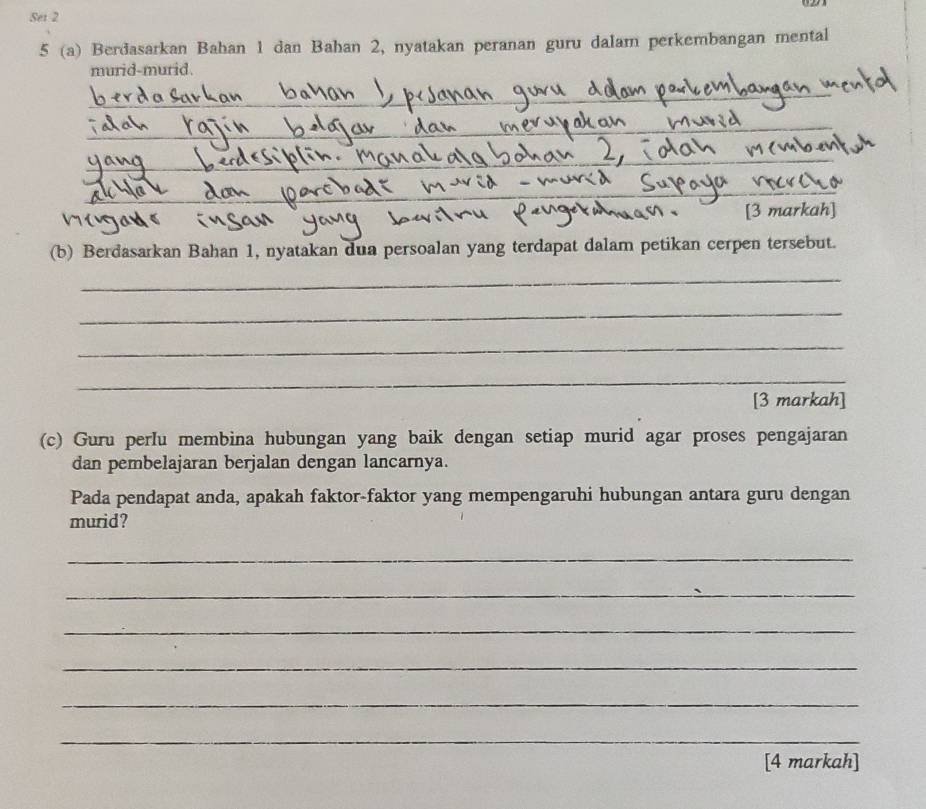 Set 2
5 (a) Berdasarkan Bahan 1 dan Bahan 2, nyatakan peranan guru dalam perkembangan mental
murid-murid.
berdasarkan bahan 1, pesanan guru ddam perkembangan mental
ialah rajin belajar dan merupakan murid
yang berdesiplin. manakala bahan 2, ialah membentuh
akhlak dan paribadi murid - murid supaya mereka
menjadi insan yang berilmu pengetahuan. [3 markah]
(b) Berdasarkan Bahan 1, nyatakan dua persoalan yang terdapat dalam petikan cerpen tersebut.
[3 markah]
(c) Guru perlu membina hubungan yang baik dengan setiap murid agar proses pengajaran
dan pembelajaran berjalan dengan lancarnya.
Pada pendapat anda, apakah faktor-faktor yang mempengaruhi hubungan antara guru dengan
murid?
[4 markah]